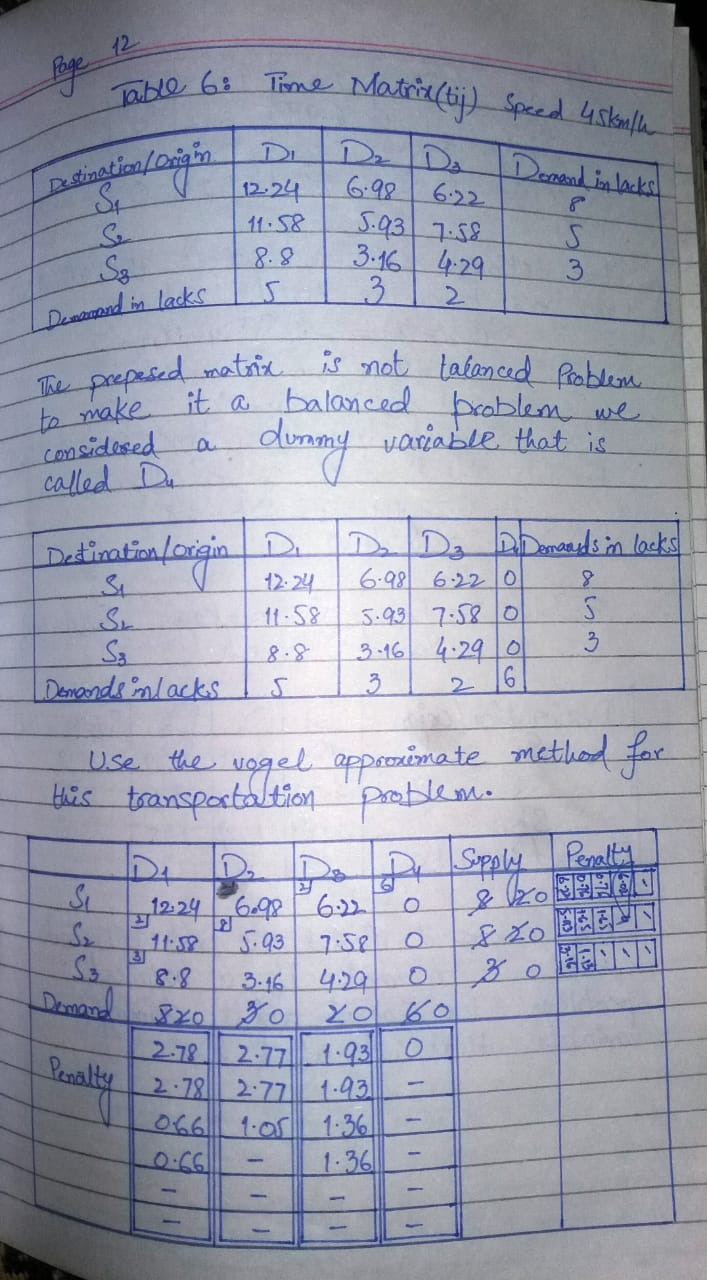 Page 12
Table 6: Time Matrix(tij) Speed 45km/h
Destination/Origin D1 D2 D3 Demand in lacks
S1 12.24 6.98 6.22 8
S2 11.58 5.93 7.58 5
S3 8.8 3.16 4.29 3
Demamand in lacks 5 3 2
The prepesed matrix is not balanced Problem
to make it a balanced problem we
considered a dummy variable that is
called D4
Destination/origin D1 D2 D3 D4 Demands in lacks
S1 12.24 6.98 6.22 0 8
S2 11.58 5.93 7.58 0 5
S3 8.8 3.16 4.29 0 3
Demands in lacks 5 3 2 6
Use the vogel approximate method for
this transportation problem.
D1 D2 D3 D4 Supply Penalty
2 6
S1 12.24 6.98 6.22 0 8 2 0
2
S2 11.58 5.93 7.58 0
3
S3 8.8 3.16 4.29 0 3 0
Demand 5 2 0 3 0 2 0 6 0
Penalty 2.78 2.77 1.93 0
2.78 2.77 1.93 -
0.66 1.05 1.36 -
0.66 - 1.36 -
- - - -
- - - -